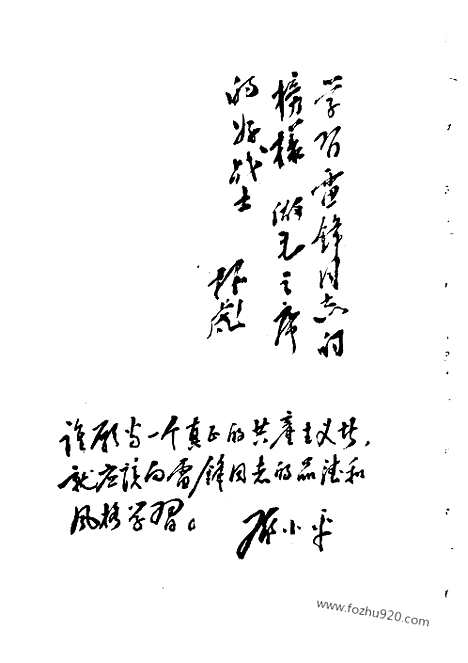 学习雷锋同志的
榜樣 做毛主席
的好战士
林彪
谁愿当一个真正的共产主义者，
就应该向雷锋同志的品德和
风格学習。 邓小平
www.fozhu920.com